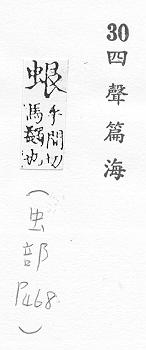 30四聲篇海
蛝
乎間切
馬蠲也
(虫部P468)